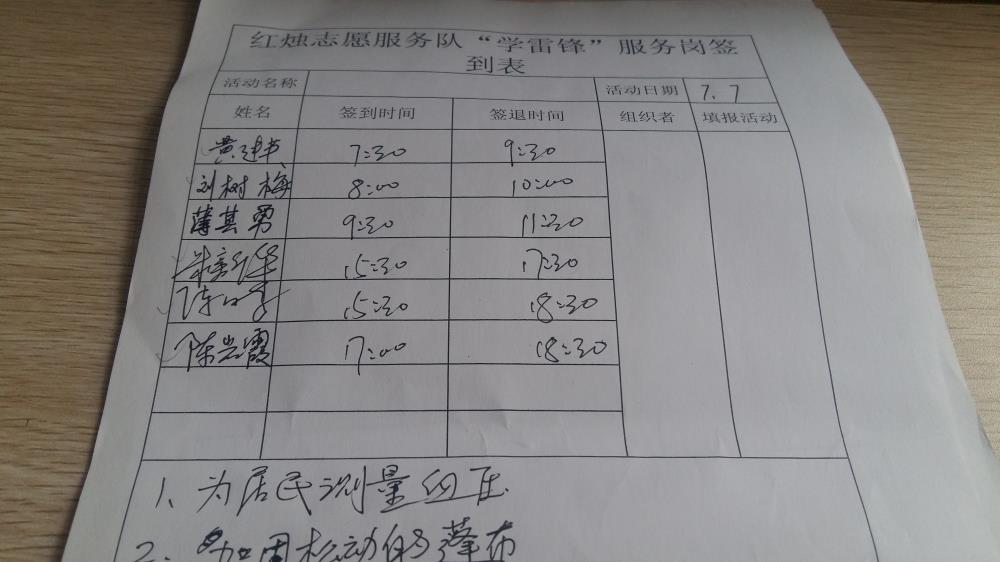 红烛志愿服务队“学雷锋”服务岗签
到表
活动名称 活动日期 7.7
姓名 签到时间 签退时间 组织者 填报活动
黄 7:30 9:30
刘树梅 8:00 10:00
薄其勇 9:30 11:30
朱 华 15:30 17:30
陈 15:30 18:30
陈兰霞 17:00 18:30
1、为居民测量血压
2、加固松动的蓬布